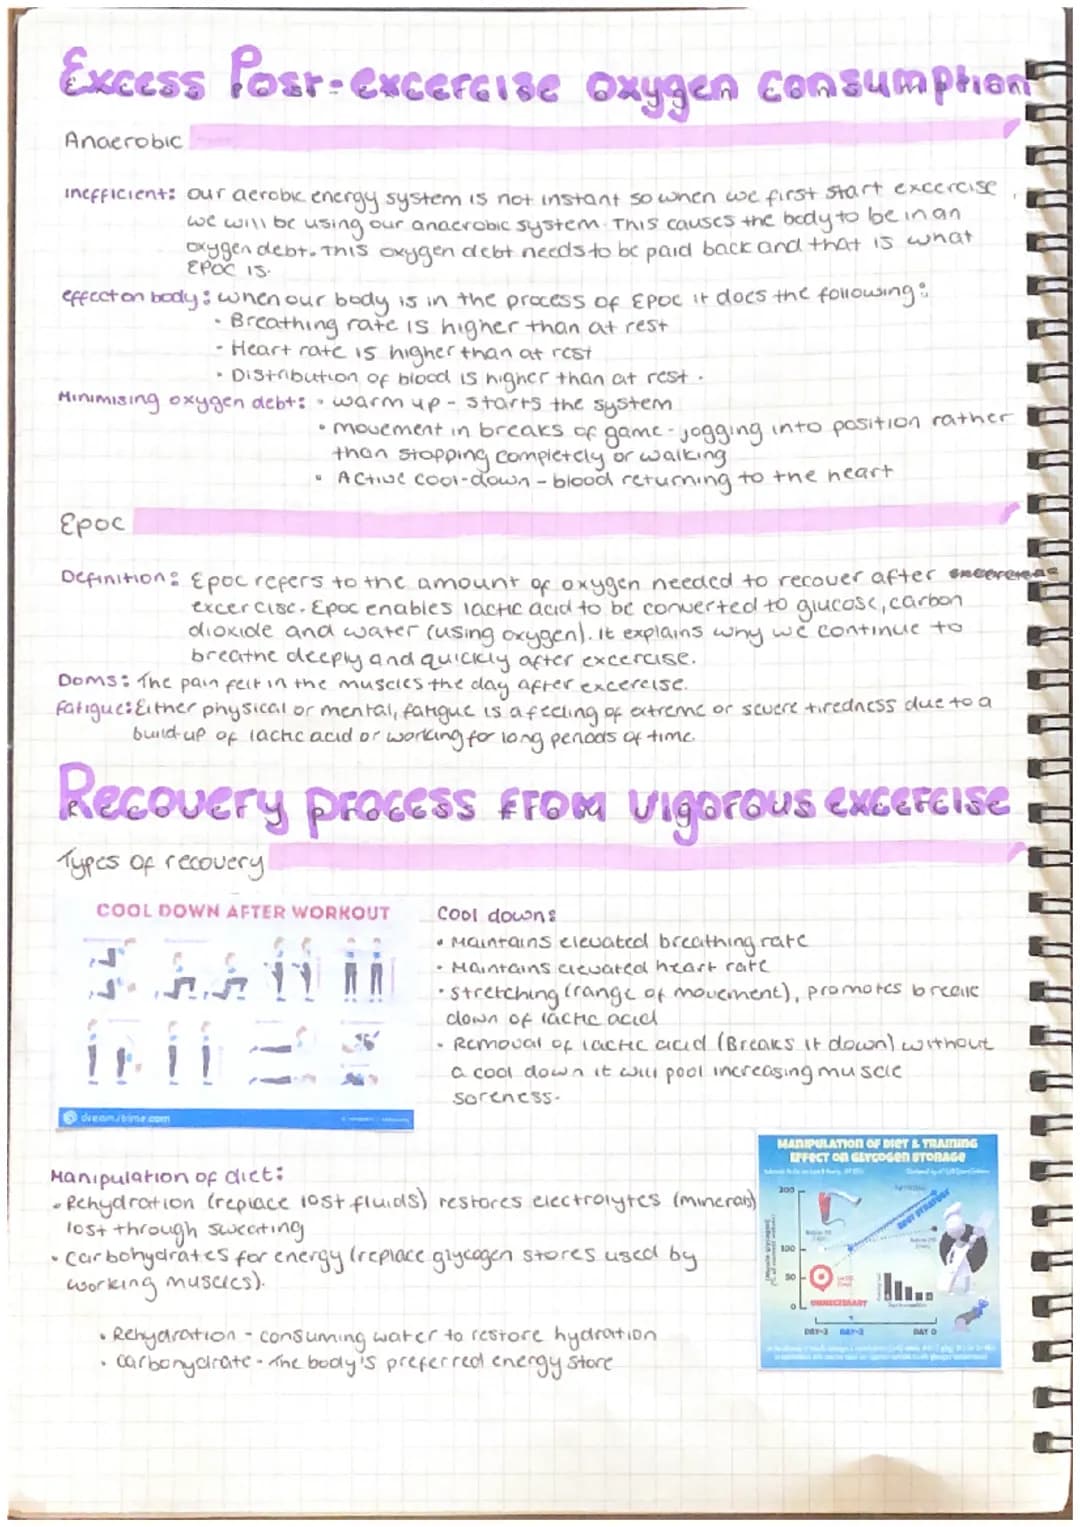 Excess Post-excercise oxygen consumption
Anaerobic
Inefficient: our aerobic energy system is not instant so when we first start excercise
we will be using our anaerobic system. This causes the body to be in an
oxygen debt. This oxygen debt needs to be paid back and that is what
EPOC is.
effect on body: when our body is in the process of EPOC it does the following:
• Breathing rate is higher than at rest
• Heart rate is higher than at rest
• Distribution of blood is higher than at rest.
Minimising oxygen debt: • warm up - starts the system
• movement in breaks of game - jogging into position rather
than stopping completely or walking
• Active cool-down - blood returning to the heart
Epoc
Definition: Epoc refers to the amount of oxygen needed to recover after
excercise. Epoc enables lactic acid to be converted to glucose, carbon
dioxide and water (using oxygen). It explains why we continue to
breathe deeply and quickly after excercise.
Doms: The pain felt in the muscles the day after excercise.
fatigue: Either physical or mental, fatigue is a feeling of extreme or severe tiredness due to a
build-up of lactic acid or working for long periods of time.
Recovery process from vigorous excercise
Types of recovery
COOL DOWN AFTER WORKOUT
dreamstime.com
Cool down:
• Maintains elevated breathing rate
• Maintains elevated heart rate
• stretching (range of movement), promotes break
down of lactic acid
• Removal of lactic acid (Breaks it down) without
a cool down it will pool increasing muscle
soreness.
MANIPULATION OF DIET & TRAINING
EFFECT ON GLYCOGEN STORAGE
200
100
50
0
BEST STRATEGY
UNNECESSARY
DAY-3 DAY-2 DAY 0
Manipulation of diet:
• Rehydration (replace lost fluids) restores electrolytes (minerals)
lost through sweating
• Carbohydrates for energy (replace glycogen stores used by
working muscles).
• Rehydration - consuming water to restore hydration
• carbohydrate - The body's preferred energy store